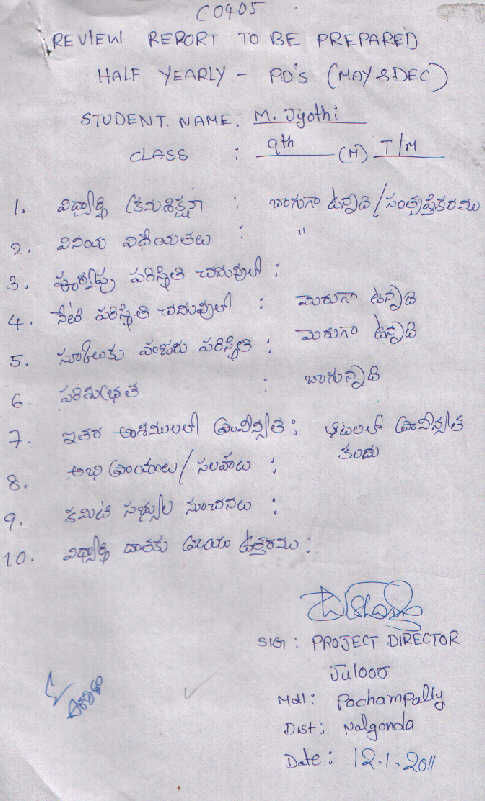 C0905
REVIEW REPORT TO BE PREPARED
HALF YEARLY - PO'S (MAY & DEC)
STUDENT NAME: M. Jyothi
CLASS : 9th (M) T/M
1. విద్యార్థి క్రమశిక్షణ : బాగుగా ఉన్నది/సంతృప్తికరము
2. వినయ విధేయతలు : "
3. పూర్వపు పరిస్థితి చదువులో :
4. నేటి పరిస్థితి చదువులో : మెరుగా ఉన్నది
5. స్కూలుకు వెళ్ళు పరిస్థితి : మెరుగా ఉన్నది
6 పరిశుభ్రత : బాగున్నది
7. ఇతర అంశములలో ప్రావీణ్యత : ఆటలలో ప్రావీణ్యత కలదు
8. అభిప్రాయాలు/సలహాలు :
9. కమిటి సభ్యుల సూచనలు :
10. విద్యార్థి దాతకు వ్రాయు ఉత్తరము :
SIG : PROJECT DIRECTOR
Juloor
Mdl: Pochampally
Dist: Nalgonda
Date: 12.1.2011